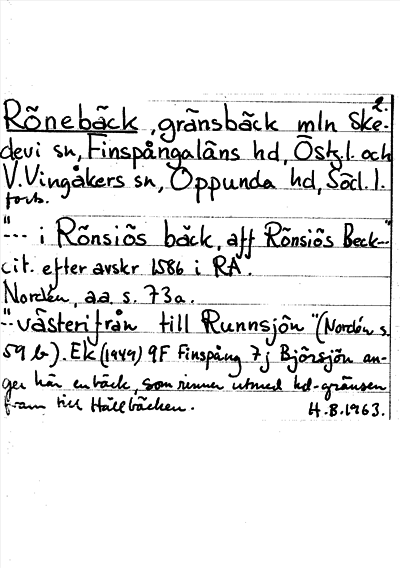 2.
Rönebäck, gränsbäck mln Ske-
devi sn, Finspångaläns hd, Östgl. och
V. Vingåkers sn, Oppunda hd, Södl. l.
forts.
"--- i Rönsiös bäck, aff Rönsiös Beck---"
cit. efter avskr 1586 i RA.
Nordén, aa. s. 73a.
"--västerifrån till Runnsjön" (Nordén s.
59 b). Ek (1949) 9F Finspång 7j Björsjön an-
ger här en bäck, som rinner utmed hd-gränsen
fram till Hällbäcken. H.B. 1963.